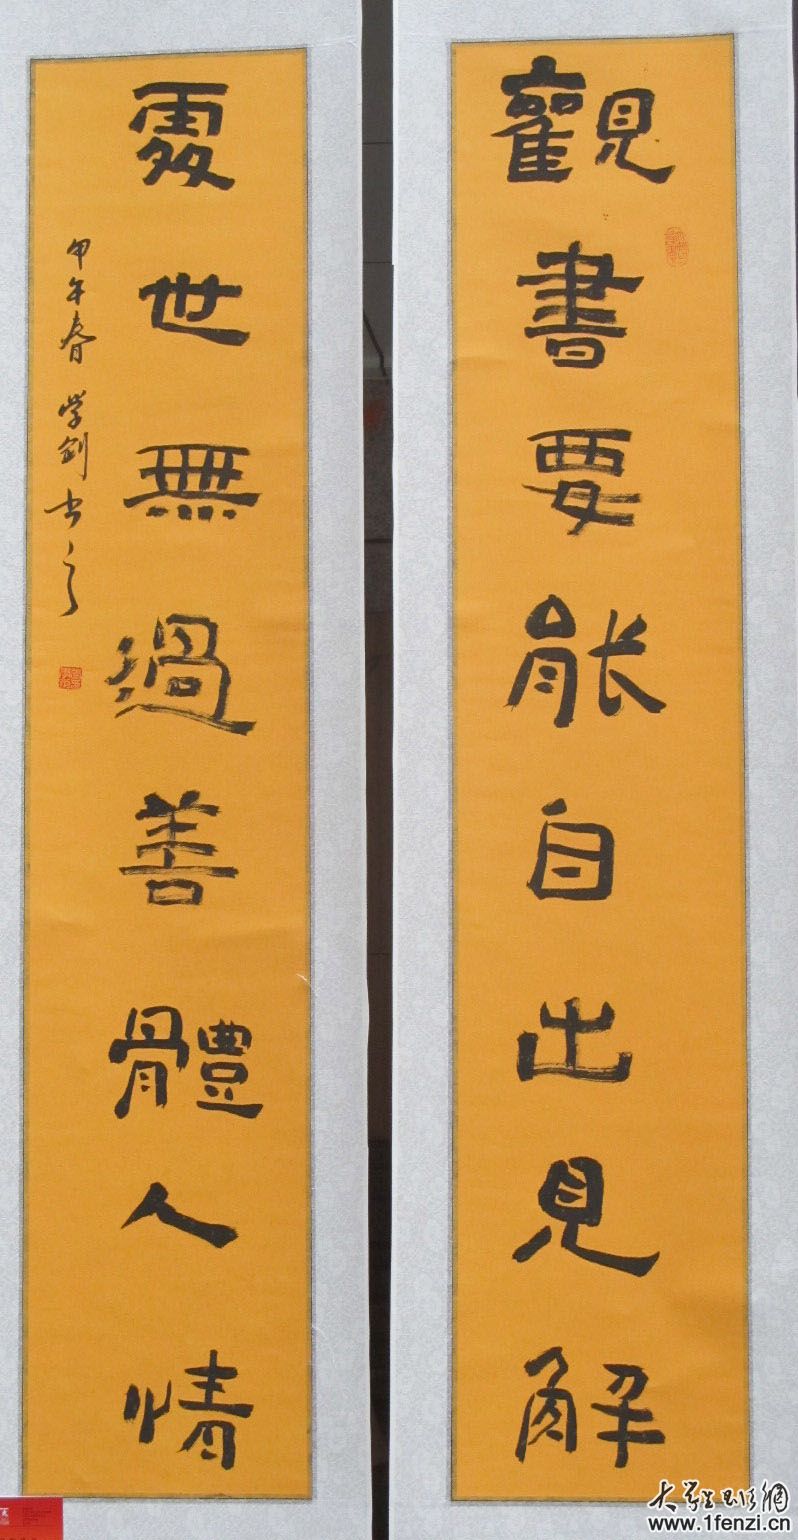 觀書要能自出見解
處世無過善體人情
甲午春 学剑书之
大学生书法网
www.1fenzi.cn